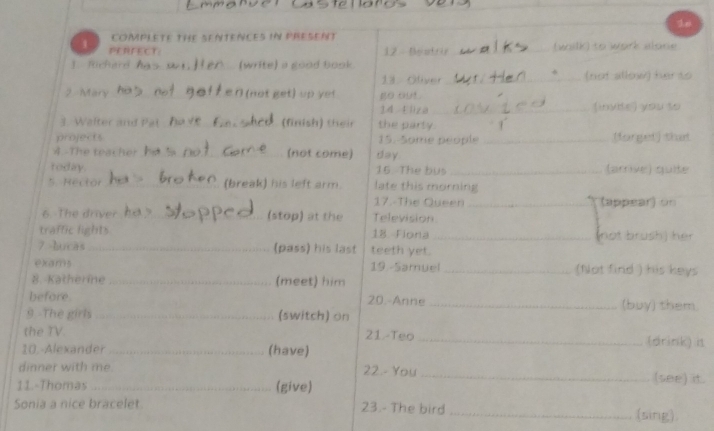 Emmanuel Castellanos Vera
1 COMPLETE THE SENTENCES IN PRESENT
PERFECT:
1.-Richard has written (write) a good book.
2.-Mary has not gotten (not get) up yet.
3.-Walter and Pat have finished (finish) their
projects.
4.-The teacher has not come (not come)
today.
5.-Hector has broken (break) his left arm.
6.-The driver has stopped (stop) at the
traffic lights.
7.-Lucas (pass) his last
exams.
8.-Katherine (meet) him
before.
9.-The girls (switch) on
the TV.
10.-Alexander (have)
dinner with me.
11.-Thomas (give)
Sonia a nice bracelet.
12.-Beatriz walks (walk) to work alone.
13.-Oliver written (not allow) her to
go out.
14.-Eliza invited (invite) you to
the party.
15.-Some people (forget) that
day.
16.-The bus (arrive) quite
late this morning
17.-The Queen (appear) on
Television.
18.-Fiona (not brush) her
teeth yet.
19.-Samuel (Not find ) his keys
20.-Anne (buy) them.
21.-Teo (drink) it
22.- You (see) it.
23.- The bird (sing).